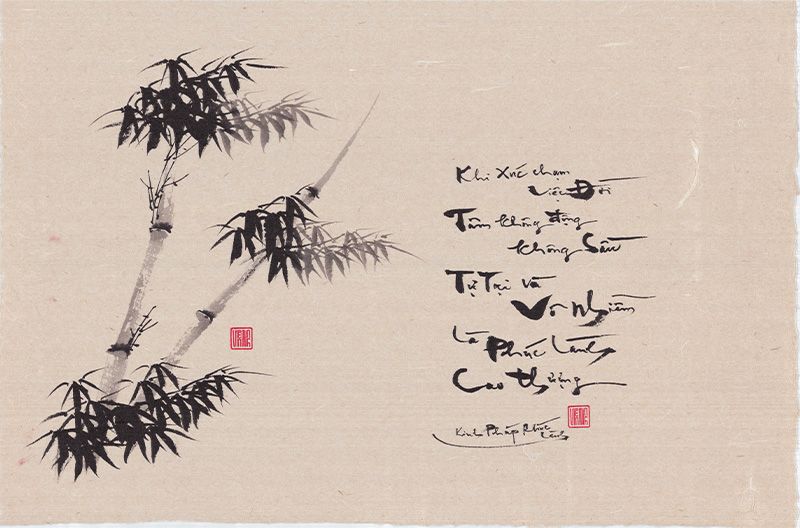 Khi Xúc chạm
việc Đời
Tâm không động
không Sầu
Tự Tại và
Vô Nhiễm
Là Phúc Lành
Cao thượng
Kinh Pháp Phúc
Lành